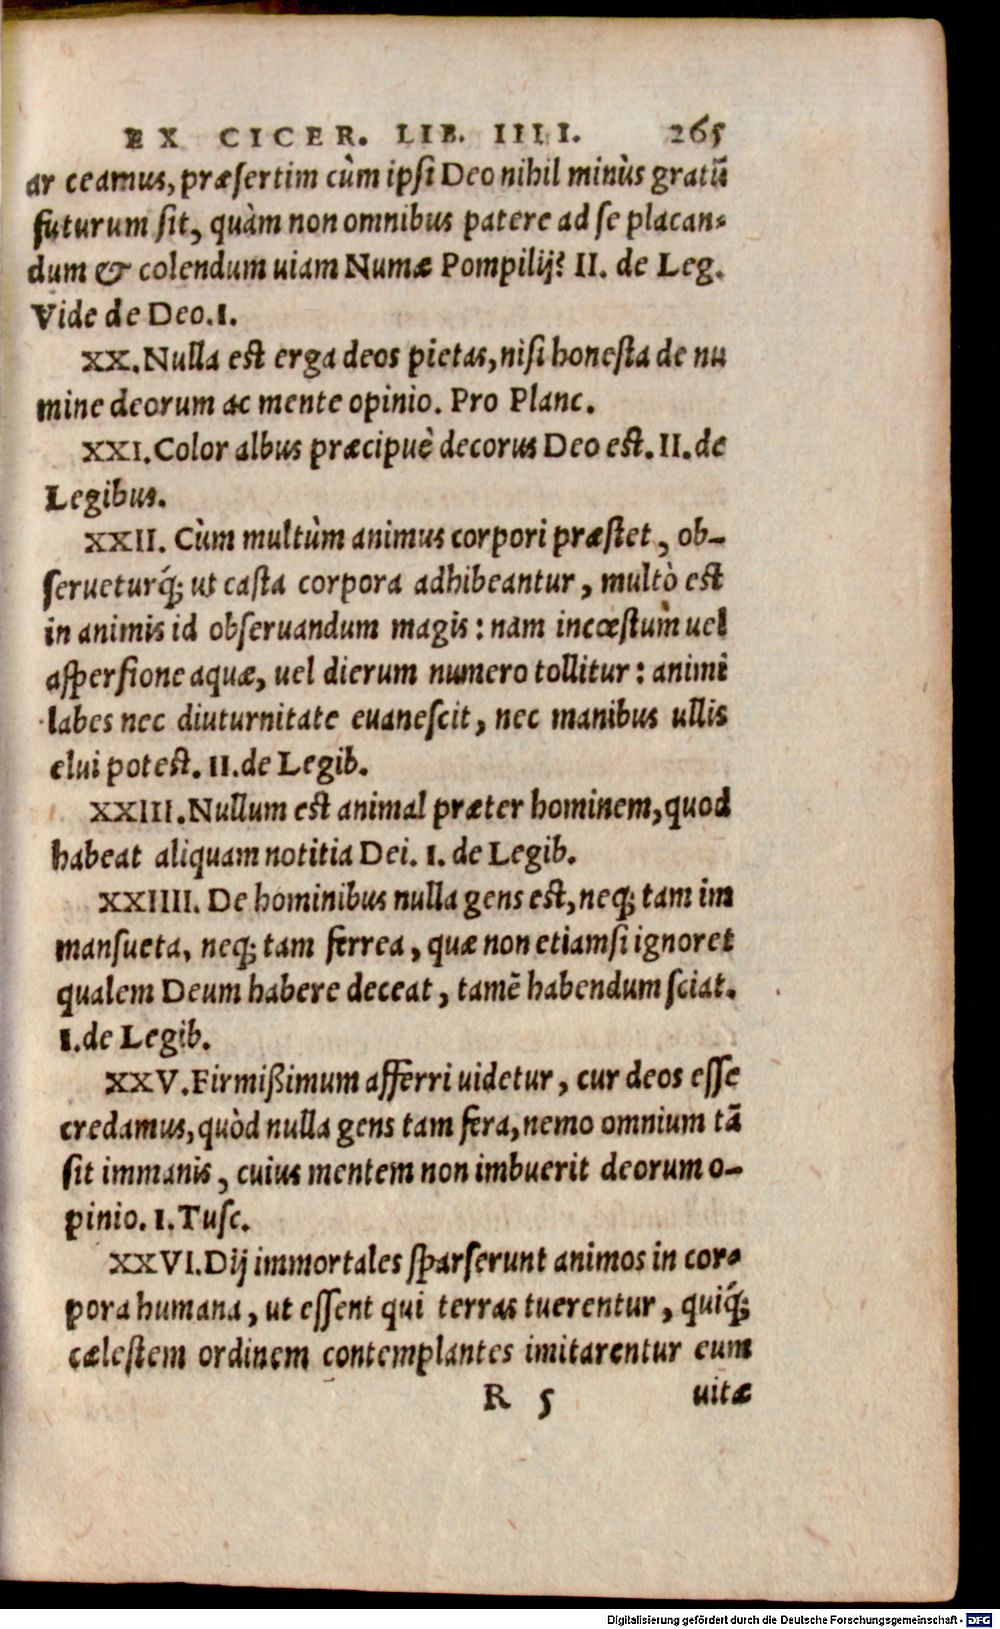 EX CICER. LIB. IIII. 265
arceamus, præsertim cùm ipsi Deo nihil minùs gratū
futurum sit, quàm non omnibus patere ad se placan-
dum & colendum uiam Numæ Pompilij? II. de Leg.
Vide de Deo. I.
XX. Nulla est erga deos pietas, nisi honesta de nu
mine deorum ac mente opinio. Pro Planc.
XXI. Color albus præcipuè decorus Deo est. II. de
Legibus.
XXII. Cùm multùm animus corpori præstet, ob-
serueturq́; ut casta corpora adhibeantur, multò est
in animis id obseruandum magis: nam incœstum uel
aspersione aquæ, uel dierum numero tollitur: animi
labes nec diuturnitate euanescit, nec manibus ullis
elui potest. II. de Legib.
XXIII. Nullum est animal præter hominem, quod
habeat aliquam notitia Dei. I. de Legib.
XXIIII. De hominibus nulla gens est, neq; tam im
mansueta, neq; tam ferrea, quæ non etiamsi ignoret
qualem Deum habere deceat, tamē habendum sciat.
I. de Legib.
XXV. Firmißimum afferri uidetur, cur deos esse
credamus, quòd nulla gens tam fera, nemo omnium tā
sit immanis, cuius mentem non imbuerit deorum o-
pinio. I. Tusc.
XXVI. Dij immortales sparserunt animos in cor-
pora humana, ut essent qui terras tuerentur, quiq́;
cælestem ordinem contemplantes imitarentur eum
R 5 uitæ
Digitalisierung gefördert durch die Deutsche Forschungsgemeinschaft - DFG